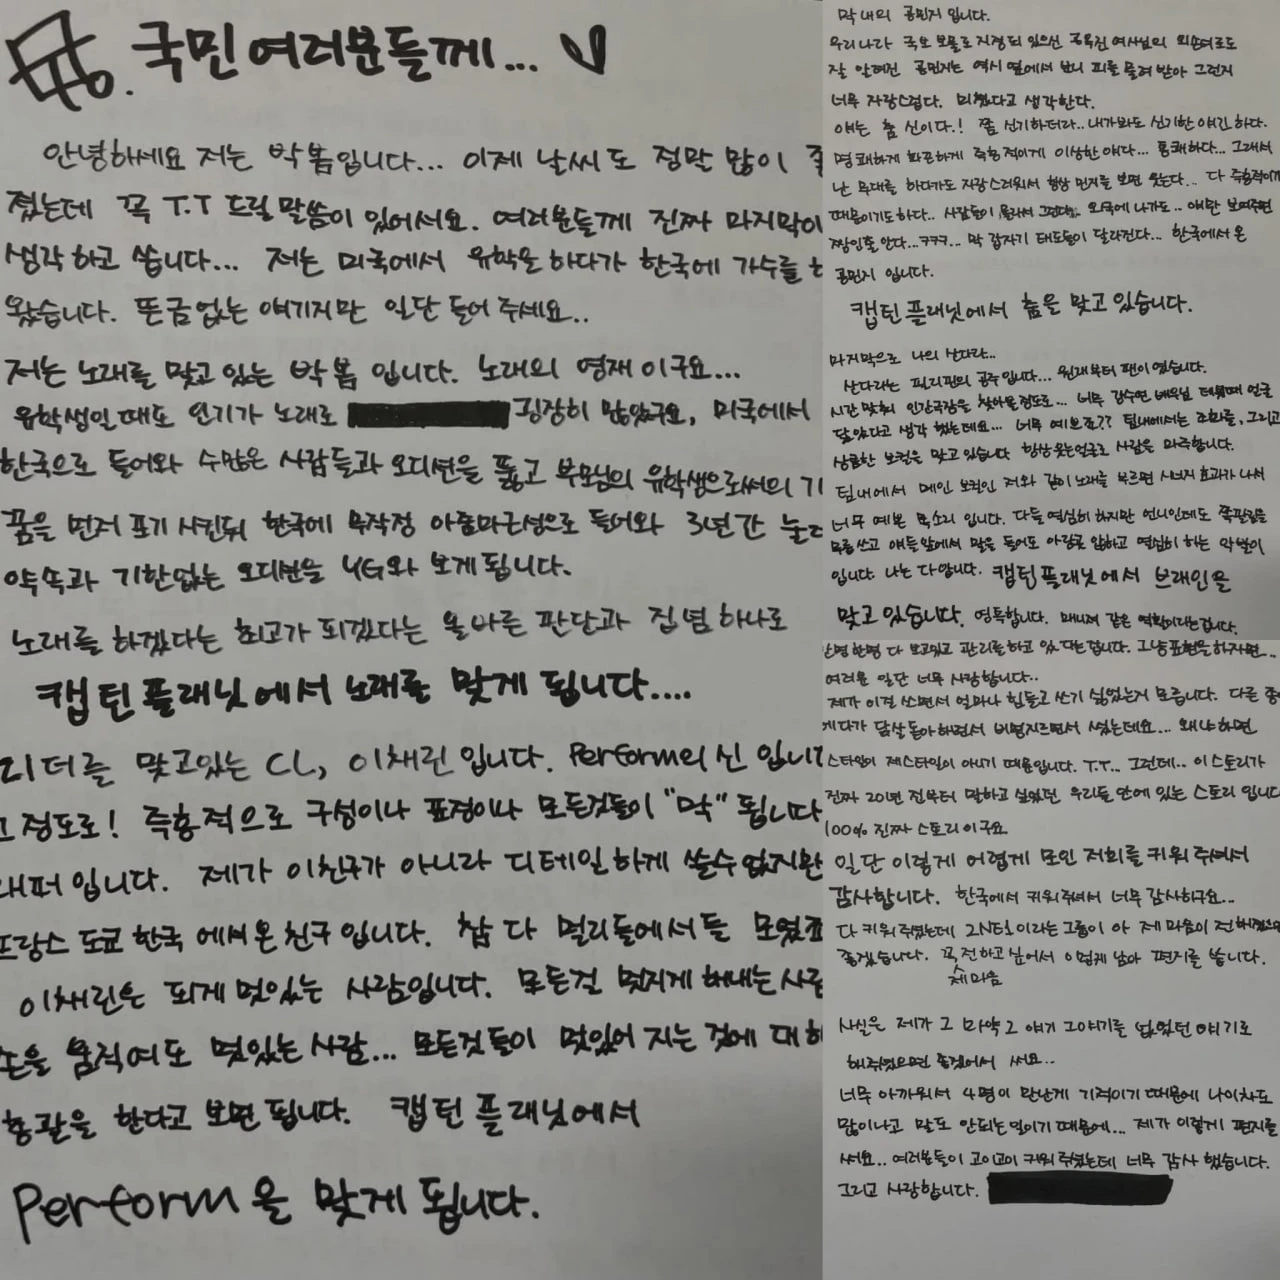 국민여러분들께...
안녕하세요 저는 박봄입니다... 이제 날씨도 정말 많이
졌는데 꼭 T.T 드릴말씀이 있어서요. 여러분들께 진짜 마지막이
생각하고 씁니다... 저는 미국에서 유학을 하다가 한국에 가수를
왔습니다. 뜬금없는 얘기지만 일단 들어주세요..
저는 노래를 맞고있는 박봄 입니다. 노래의 영재이구요...
유학생인때도 인기가 노래로 굉장히 많았구요, 미국에서
한국으로 들어와 수많은 사람들과 오디션을 뚫고 부모님의 유학생으로써의
꿈을 먼저 포기 시킨뒤 한국에 무작정 아줌마근성으로 들어와 3년간
약속과 기한없는 오디션을 YG와 보게됩니다.
노래를 하겠다는 최고가 되겠다는 올바른 판단과 집념 하나로
캡틴플래닛에서 노래를 맞게 됩니다....
리더를 맞고있는 CL, 이채린 입니다. Perform의 신 입니다
그정도로! 즉흥적으로 구성이나 표정이나 모든것들이 "막" 됩니다
래퍼 입니다. 제가 이친구가 아니라 디테일하게 쓸수 없지만
프랑스 도쿄 한국 에서 온 친구 입니다. 참 다 멀리들에서들 모였죠
이채린은 되게 멋있는 사람입니다. 모든걸 멋지게 해내는
손을 움직여도 멋있는 사람... 모든것들이 멋있어 지는 것에
총괄을 한다고 보면 됩니다. 캡틴 플래닛에서
Perform을 맞게 됩니다.
막내의 공민지 입니다.
우리나라 국보 보물로 지정되 있으신 공옥진 여사님의 외손녀로도
잘 알려진 공민지는 역시 옆에서 보니 피를 물려 받아 그런지
너무 자랑스럽다. 미쳤다고 생각한다.
얘는 춤 신이다.! 쫌 신기하더라.. 내가봐도 신기한 얘긴 하다.
명쾌하게 화끈하게 즉흥적이게 이상한 얘다... 통쾌하다... 그래서
난 무대를 하다가도 자랑스러워서 항상 민지를 보면 웃는다... 다 즉흥적이기
때문이기도하다.. 사람들이 몰라서 그런다.. 외국에 나가도.. 얘만 보여주면
짱인줄 안다...ㅋㅋㅋ... 막 갑자기 태도들이 달라진다... 한국에서 온
공민지 입니다.
캡틴플래닛에서 춤을 맞고 있습니다.
마지막으로 나의 산다라...
산다라는 필리핀의 공주입니다... 원래부터 팬이 였습니다.
시간 맞춰 인간극장을 찾아볼정도로... 너무 강수연 배우님 데뷔때 얼굴
닮았다고 생각 했는데요... 너무 예쁘죠?? 팀내에서는 조화를, 그리고
상큼한 보컬을 맞고 있습니다 항상웃는얼굴로 사람을 마주합니다.
팀내에서 메인 보컬인 저와 같이 노래를 부르면 시너지 효과가 나서
너무 예쁜 목소리 입니다. 다들 열심히 하지만 언니인데도 쪽팔림을
무릅쓰고 얘들앞에서 말을 들어도 아랑곳 않하고 열심히 하는 악발이
입니다. 나는 다 압니다. 캡틴플래닛에서 브레인을
맞고 있습니다. 영특합니다. 매니저 같은 역할이라는겁니다.
한명한명 다 보고있고 관리를하고 있다는겁니다. 그냥 표현을하자면...
여러분 일단 너무 사랑합니다..
제가 이걸 쓰면서 얼마나 힘들고 쓰기 싫었는지 모릅니다. 다른
게다가 닭살돋아하면서 비명지르면서 썼는데요... 왜냐하면
스타일이 제스타일이 아니기 때문입니다. T.T... 그런데.. 이스토리가
진짜 20년 전부터 말하고 싶었던 우리들 안에 있는 스토리 입니다
100% 진짜 스토리이구요
일단 이렇게 어렵게 모인 저희를 키워주셔서
감사합니다. 한국에서 키워주셔서 너무 감사하구요...
다 키워주셨는데 2NE1이라는그룹이 아 제 마음이 전해졌으면
좋겠습니다. 꼭 전하고싶어서 이렇게 남아 편지를 씁니다.
제마음
사실은 제가 그 마약 그 얘기 그얘기를 없었던 얘기로
해주셨으면 좋겠어서 써요..
너무 아까워서 4명이 만난게 기적이기 때문에 나이차도
많이나고 말도 안되는일이기 때문에... 제가 이렇게 편지를
써요.. 여러분들이 고이고이 키워주셨는데 너무 감사 했습니다.
그리고 사랑합니다.